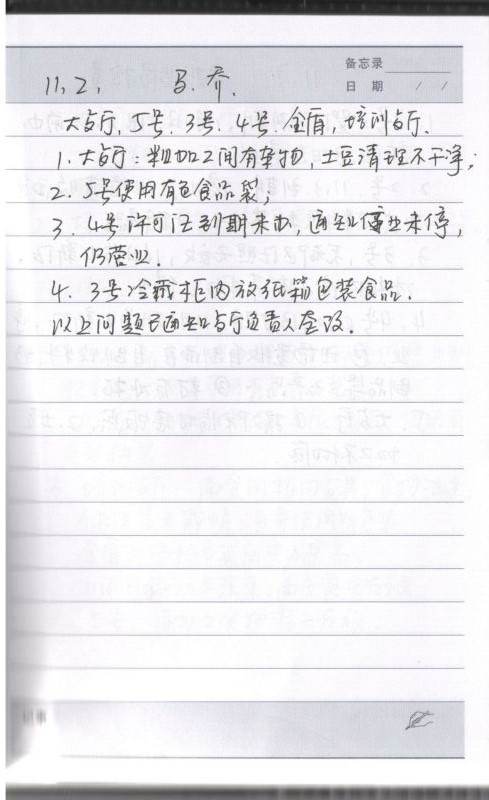 备忘录
日 期 / /
11.2. 马.乔.
大餐厅,5号.3号.4号.金盾,培训餐厅.
1.大餐厅:粗加工间有杂物,土豆清理不干净;
2.5号使用有色食品袋;
3.4号许可证到期未办,通知停业未停,
仍营业.
4.3号冷藏柜内放纸箱包装食品.
以上问题已通知餐厅负责人整改.